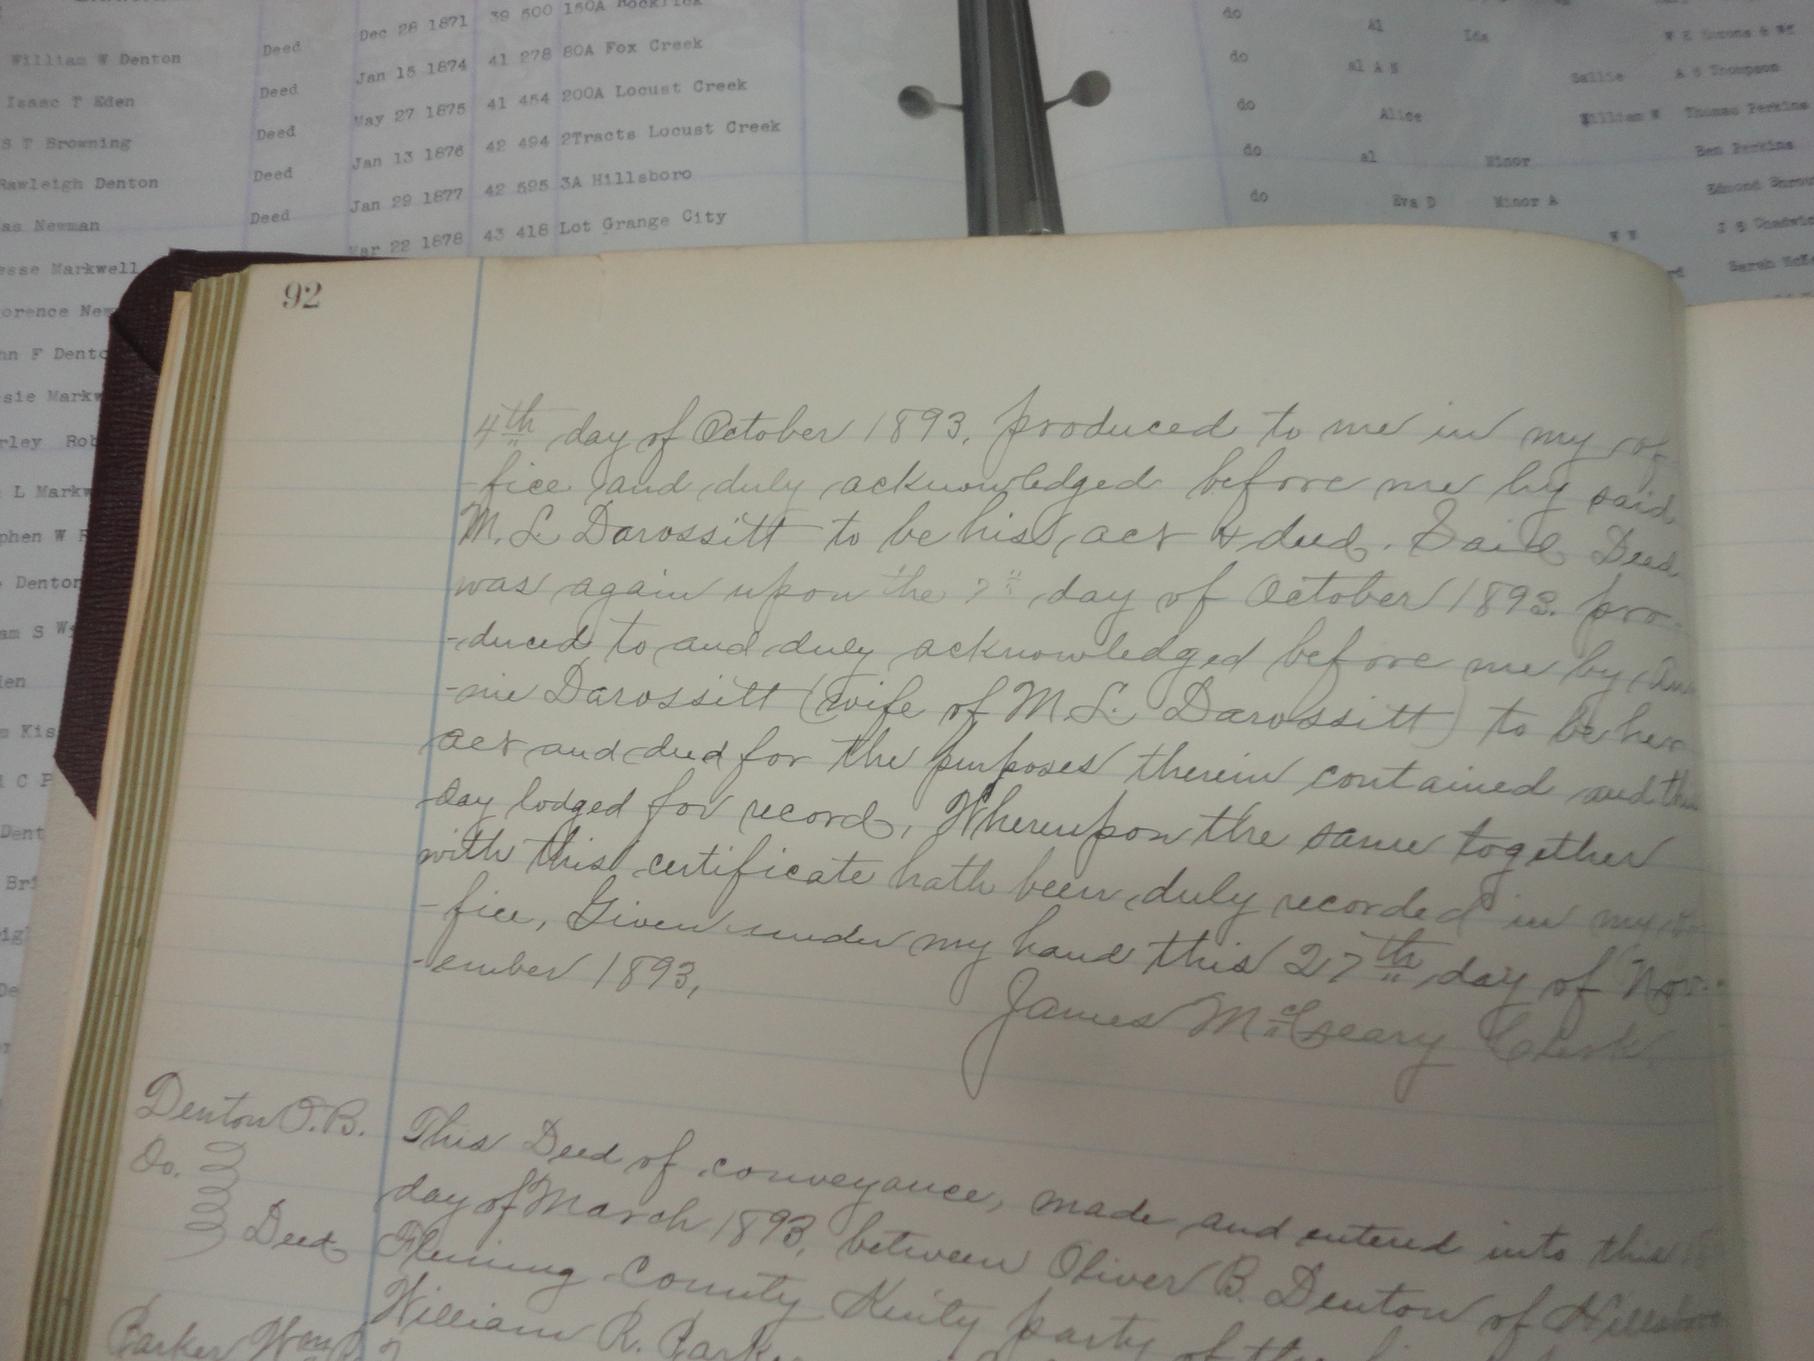 Dec 28 1871 39 500 160A
William W Denton Deed Jan 15 1874 41 278 80A Fox Creek
Isaac T Eden Deed May 27 1875 41 454 200A Locust Creek
S T Browning Deed Jan 13 1876 42 494 2Tracts Locust Creek
Rawleigh Denton Deed Jan 29 1877 42 595 3A Hillsboro
as Newman Deed Mar 22 1878 43 418 Lot Grange City
esse Markwell
orence New
hn F Dento
sie Markw
rley Rob
L Markw
phen W
Denton
am S
Kis
C P
Dent
Bri
do Al Ida
do al A S Sallie A S Thompson
do Alice William W Thomas Perkins
do al Minor Ben Perkins
do Eva D Minor A Edmond
W W
Sarah
92
4th day of October 1893, produced to me in my of-
-fice and duly acknowledged before me by said
M. L. Darossitt to be his act & deed. Said Deed
was again upon the 7" day of October 1893. pro-
-duced to and duly acknowledged before me by An
-nie Darossitt (wife of M. L. Darossitt) to be her
act and deed for the purposes therein contained and this
day lodged for record, Whereupon the same together
with this certificate hath been duly recorded in my of
-fice, Given under my hand this 27th day of Nov-
-ember 1893,
James McCleary Clerk
Denton O. B.
Do.
Deed
Parker Wm R
This Deed of conveyance, made and entered into this
day of March 1893, between Oliver B. Denton of Hillsboro
Fleming County Kenty party of the
William R. Parker